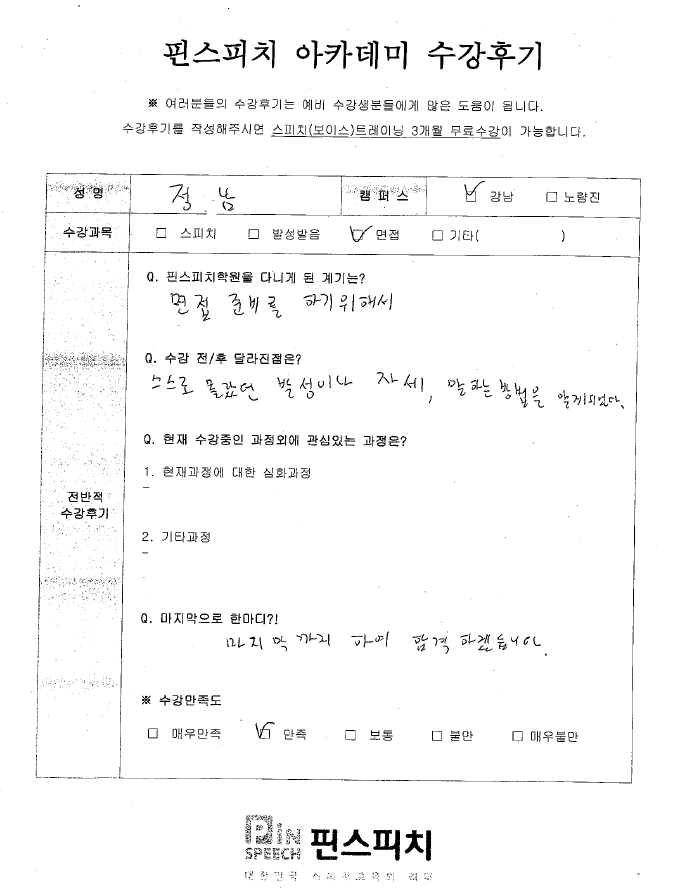 핀스피치 아카데미 수강후기
※ 여러분들의 수강후기는 예비 수강생분들에게 많은 도움이 됩니다.
수강후기를 작성해주시면 스피치(보이스)트레이닝 3개월 무료수강이 가능합니다.
성 명 정 남 캠 퍼 스 ☑ 강남 □ 노량진
수강과목 □ 스피치 □ 발성발음 ☑ 면접 □ 기타( )
Q. 핀스피치학원을 다니게 된 계기는?
면접 준비를 하기위해서
Q. 수강 전/후 달라진점은?
스스로 몰랐던 발성이나 자세, 말하는 방법을 알게되었다.
Q. 현재 수강중인 과정외에 관심있는 과정은?
1. 현재과정에 대한 심화과정
–
전반적
수강후기
2. 기타과정
–
Q. 마지막으로 한마디?!
마지막까지 하여 합격 하겠습니다.
※ 수강만족도
□ 매우만족 ☑ 만족 □ 보통 □ 불만 □ 매우불만
PiN
SPEECH
핀스피치
대한민국 스피치교육의 리더